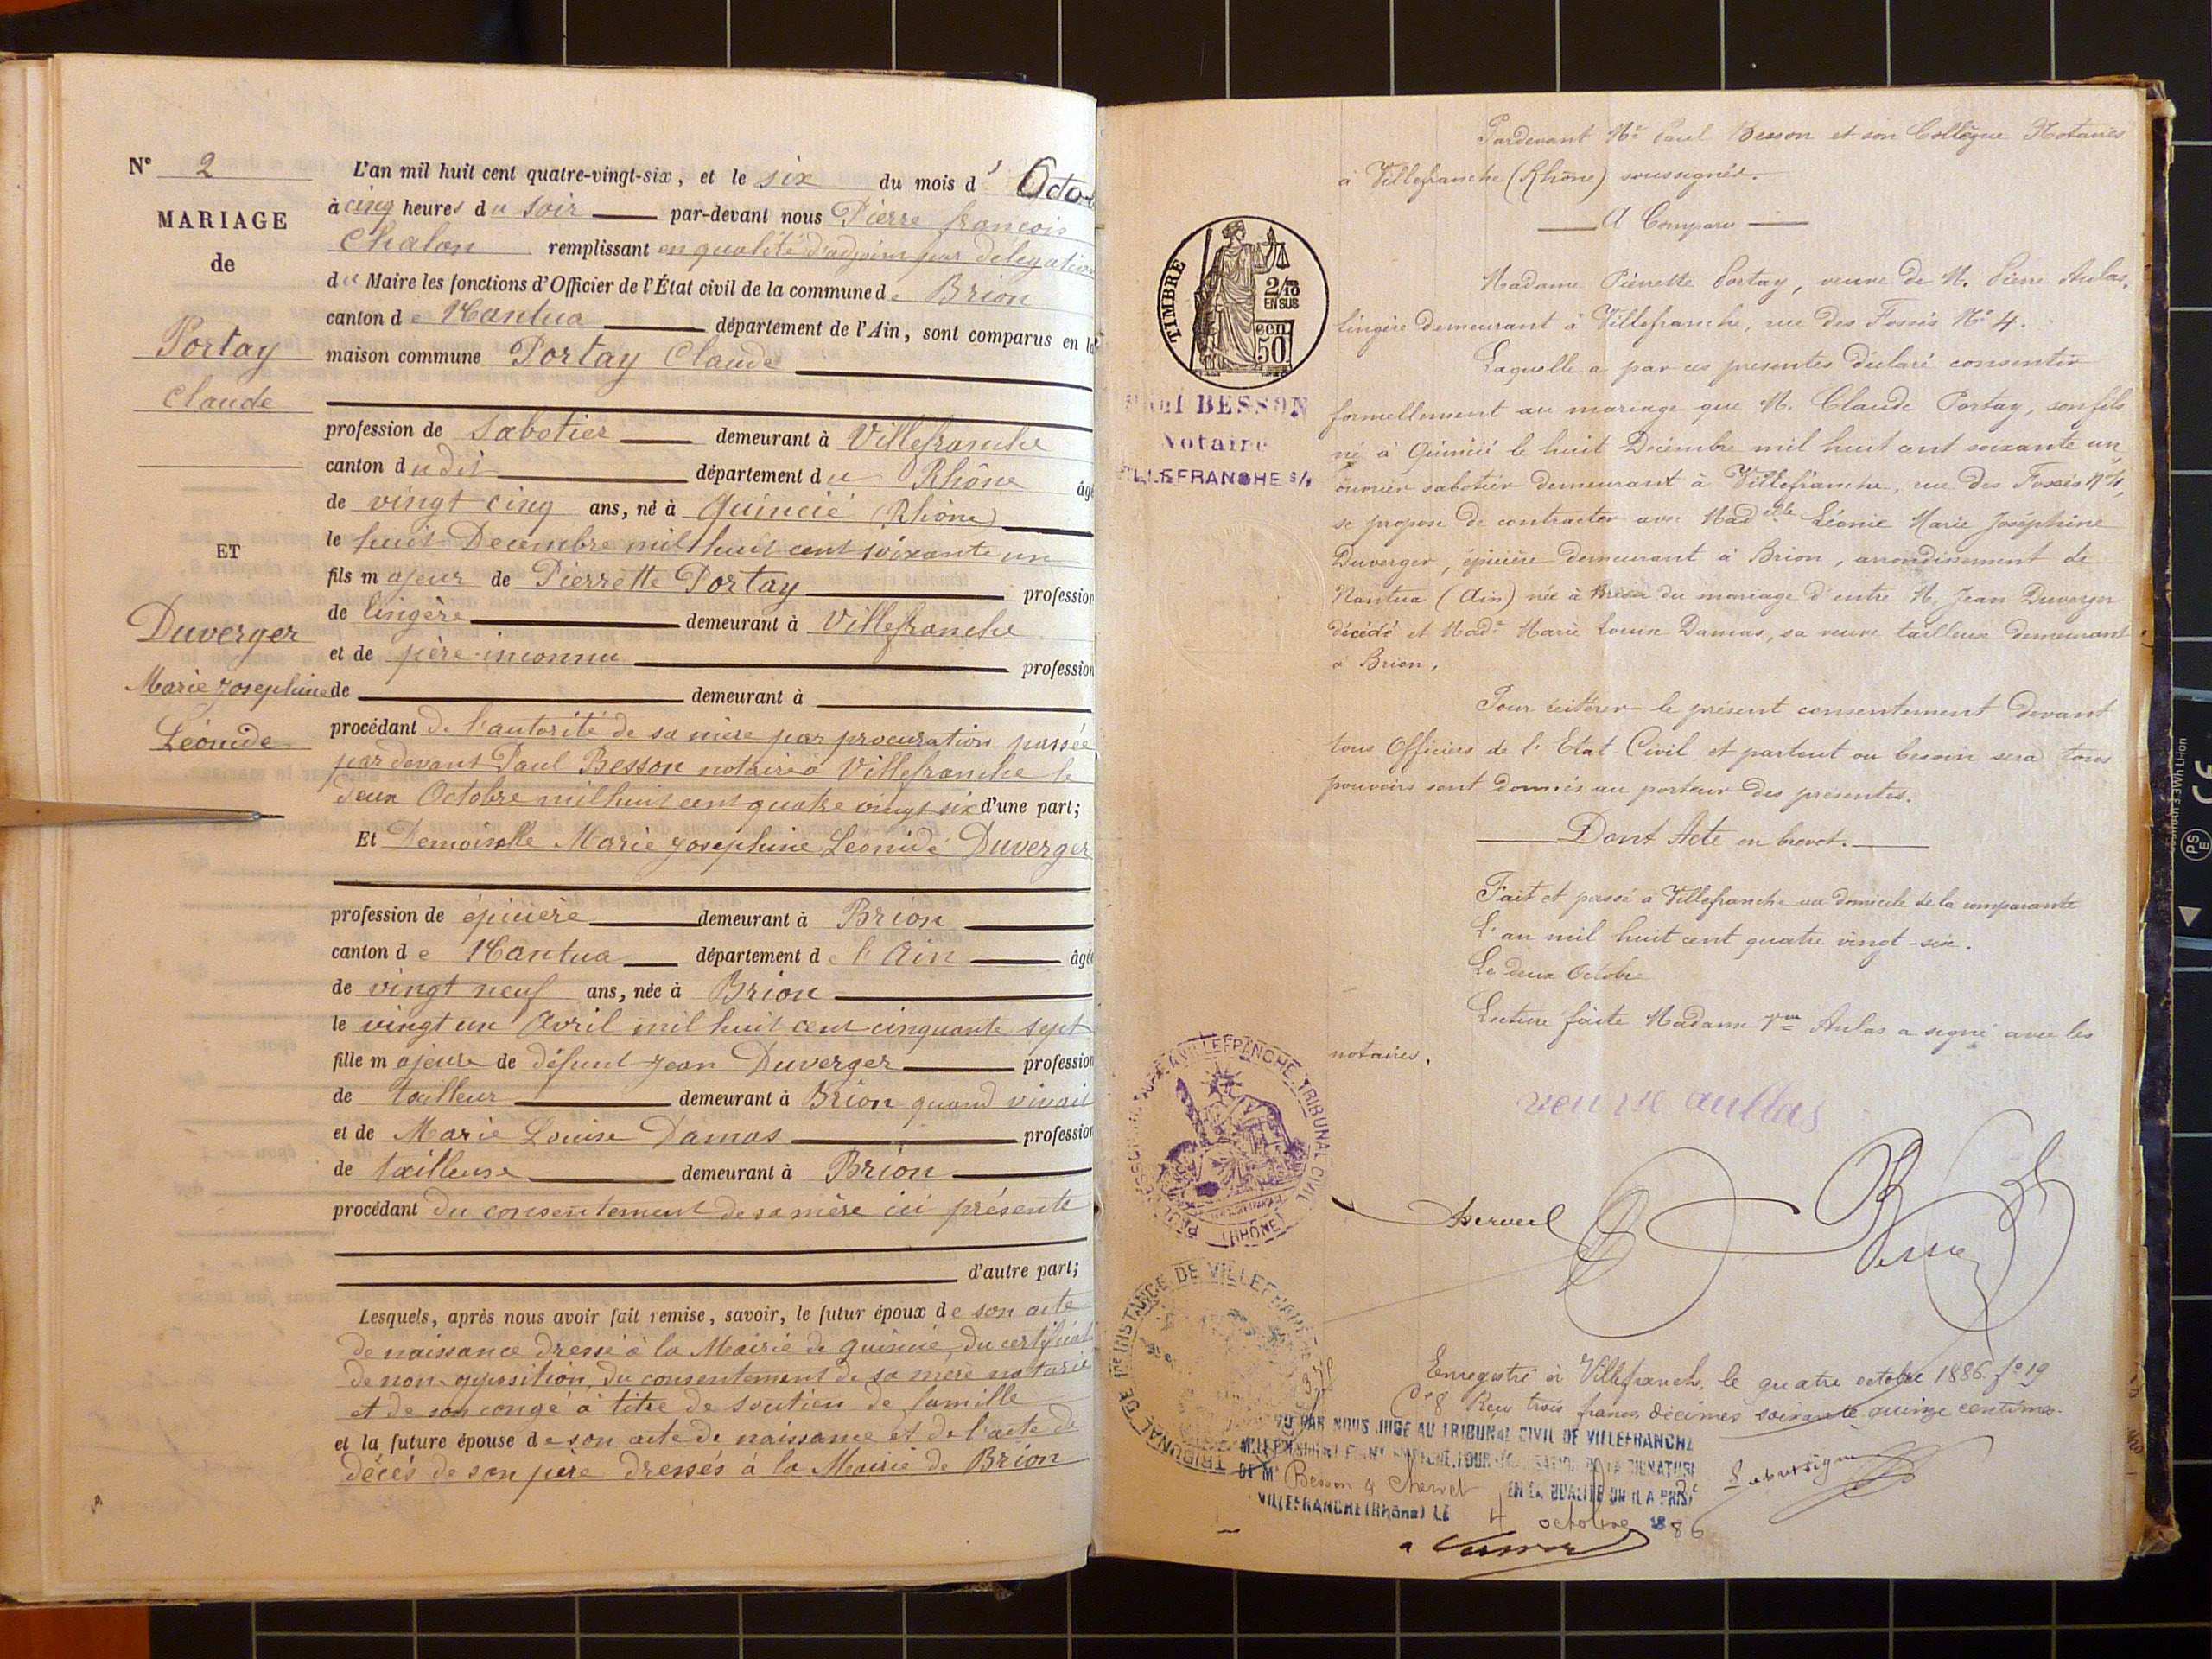 N° 2
MARIAGE
de
Portay
Claude
ET
Duverger
Marie Josephine
Léonide
L'an mil huit cent quatre-vingt-six, et le six du mois d' Octo
à cinq heures du soir par-devant nous Pierre françois
Chalon remplissant en qualité d'adjoint par délégation
du Maire les fonctions d'Officier de l'État civil de la commune de Brion
canton de Nantua département de l'Ain, sont comparus en la
maison commune Portay Claude
profession de Sabotier demeurant à Villefranche
canton du dit département du Rhône âgé
de vingt cinq ans, né à Quincié (Rhône)
le huit Decembre mil huit cent soixante un
fils majeur de Pierrette Portay profession
de lingère demeurant à Villefranche
et de père inconnu profession
de demeurant à
procédant de l'autorité de sa mère par procuration passée
par devant Paul Besson notaire à Villefranche le
deux Octobre mil huit cent quatre vingt six d'une part;
Et Demoiselle Marie Josephine Léonide Duverger
profession de épicière demeurant à Brion
canton de Nantua département de l'Ain âgée
de vingt neuf ans, née à Brion
le vingt un Avril mil huit cent cinquante sept
fille majeure de défunt Jean Duverger profession
de tailleur demeurant à Brion quand vivait
et de Marie Louise Damas profession
de tailleuse demeurant à Brion
procédant du consentement de sa mère ici présente
d'autre part;
Lesquels, après nous avoir fait remise, savoir, le futur époux de son acte
de naissance dressé à la Mairie de Quincié, du certificat
de non-opposition, du consentement de sa mère notarié
et de son congé à titre de soutien de famille
et la future épouse de son acte de naissance et de l'acte de
décès de son père dressés à la Mairie de Brion
Pardevant Me Paul Besson et son Collègue Notaires
à Villefranche (Rhône) soussignés.
A Comparu
Madame Pierrette Portay, veuve de M. Pierre Aulas,
lingère demeurant à Villefranche, rue des Fossés No 4.
Laquelle a par ces présentes déclaré consentir
formellement au mariage que M. Claude Portay, son fils
né à Quincié le huit Décembre mil huit cent soixante un
ouvrier sabotier demeurant à Villefranche, rue des Fossés No 4,
se propose de contracter avec Madelle Léonie Marie Joséphine
Duverger, épicière demeurant à Brion, arrondissement de
Nantua (Ain) née à Brion du mariage d'entre M. Jean Duverger
décédé et Made Marie Louise Damas, sa veuve tailleuse demeurant
à Brion.
Pour réitérer le présent consentement devant
tous Officiers de l'Etat Civil et partout où besoin sera tous
pouvoirs sont donnés au porteur des présentes.
Dont Acte en brevet.
Fait et passé à Villefranche au domicile de la comparante
L'an mil huit cent quatre vingt-six.
Le deux Octobre
Lecture faite Madame Vve Aulas a signé avec les
notaires.
veuve aullas
Besson
Enregistré à Villefranche, le quatre octobre 1886. fo 19
Co 8 Reçu trois francs, décimes soixante quinze centimes.
TIMBRE
2/10
EN SUS
50
BESSON
Notaire
VU PAR NOUS JUGE AU TRIBUNAL CIVIL DE VILLEFRANCHE
DE Me Besson & Chervet EN LA QUALITÉ QU'IL A PRISE
VILLEFRANCHE (Rhône) LE 4 octobre 1886
TRIBUNAL DE 1re INSTANCE DE VILLEFRANCHE